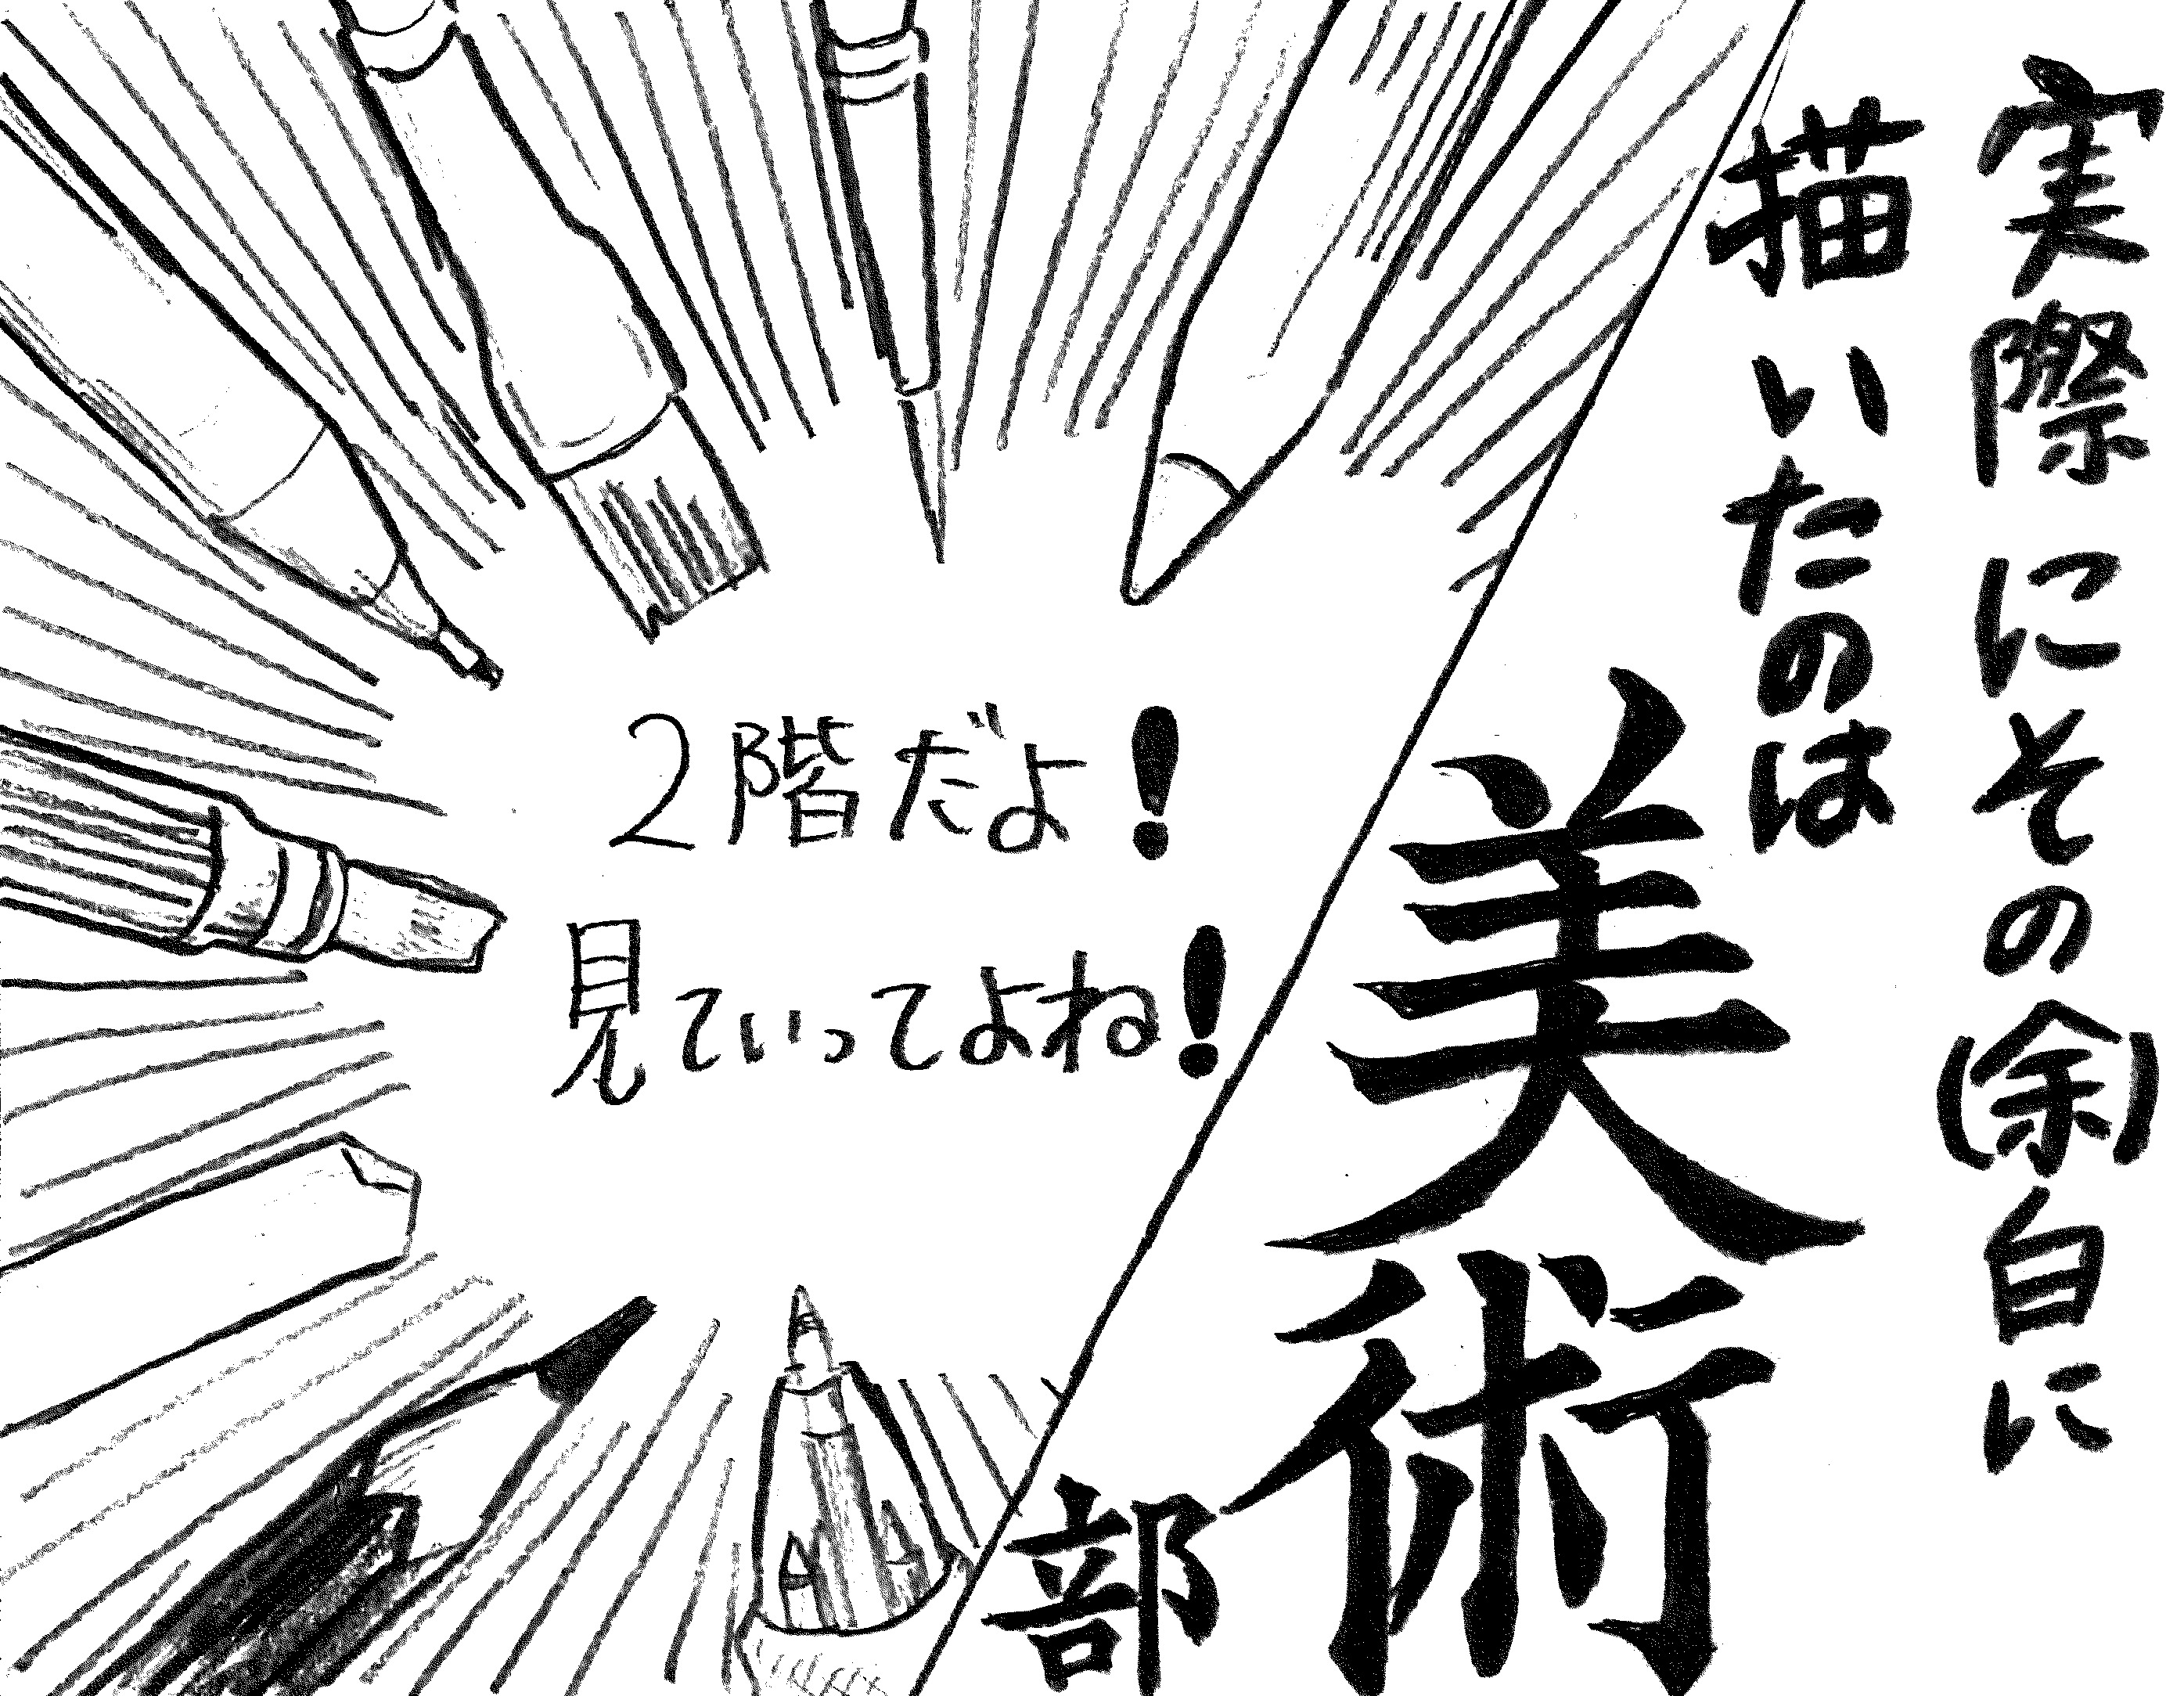 実際にその(余)白に
描いたのは
美術
部
2階だよ!
見ていってよね!